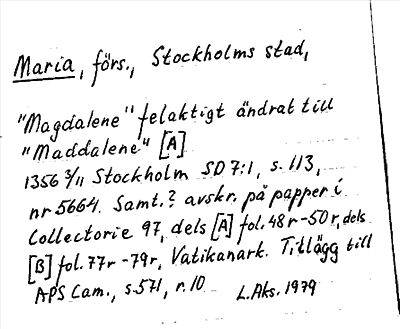 Maria, förs., Stockholms stad,
"Magdalene" felaktigt ändrat till
"Maddalene" [A]
1356 3/11 Stockholm SD 7:1, s. 113,
nr 5664. Samt.? avskr. på papper i
Collectorie 97, dels [A] fol. 48r-50r, dels
[B] fol. 77r-79r, Vatikanark. Tillägg till
APS Cam., s. 571, r. 10 L. Aks. 1979